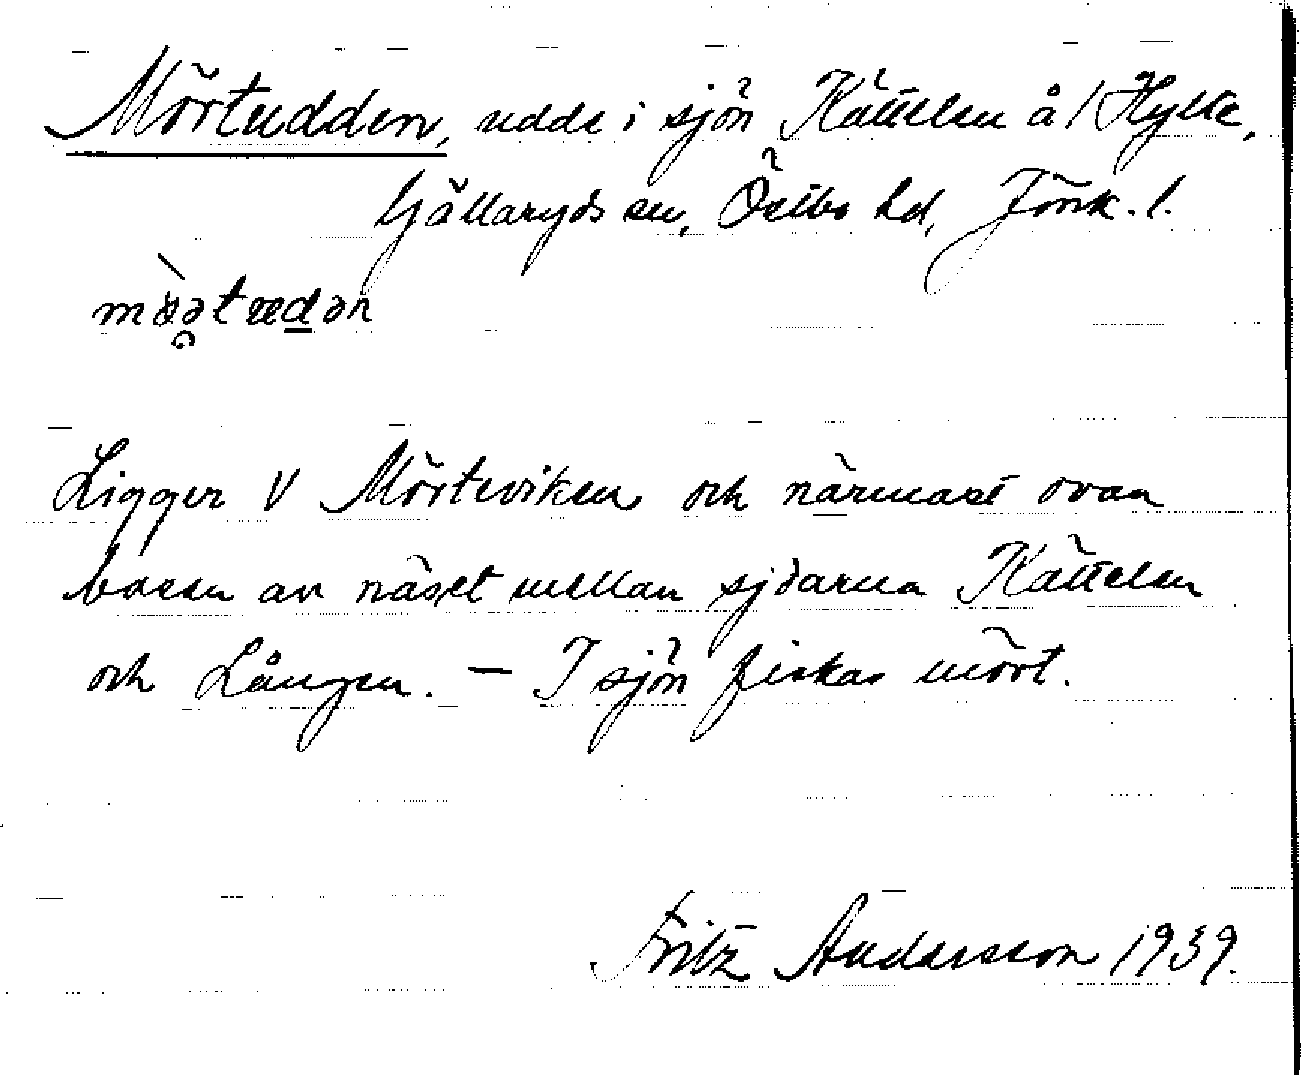 Mörtudden, udde i sjön Kättelen å 1 Hylte,
Gällaryds sn, Östbo hd, Jönk. l.
Ligger V Mörteviken och närmast ovan
basen av näset mellan sjöarna Kättelen
och Lången. — I sjön fiskas mört.
Fritz Andersson 1939.